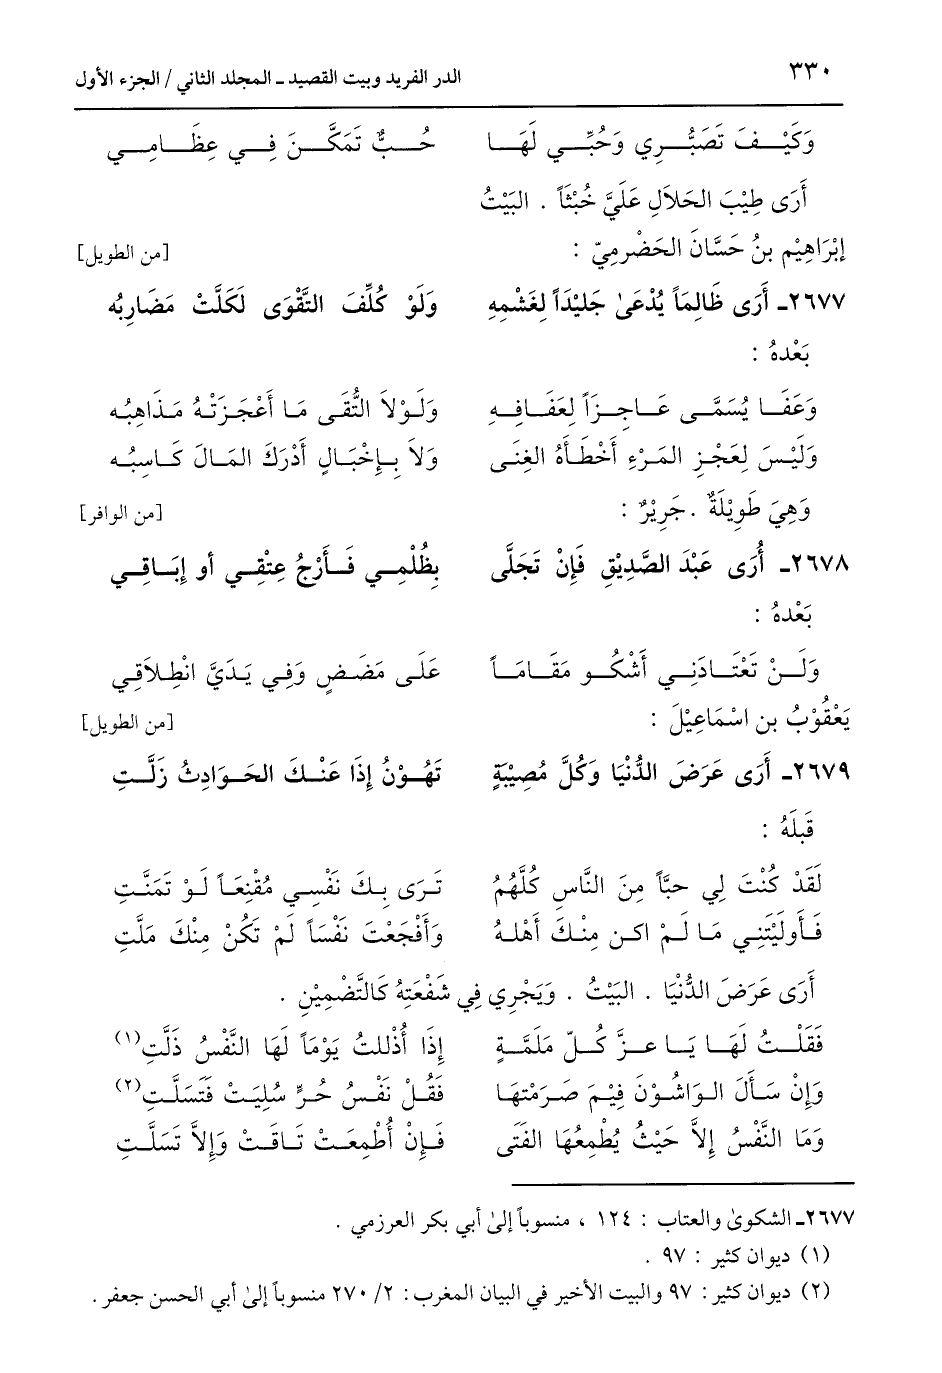 ٣٣٠ الدر الفريد وبيت القصيد ـ المجلد الثاني / الجزء الأول
وَكَيْفَ تَصَبُّرِي وَحُبِّي لَهَا حُبٌّ تَمَكَّنَ فِي عِظَامِي
أَرَى طِيْبَ الحَلاَلِ عَلَيَّ خُبْثَاً . البَيْتُ
إِبْرَاهِيْم بنُ حَسَّانَ الحَضْرمِيّ : [من الطويل]
٢٦٧٧ـ أَرَى ظَالِمَاً يُدْعَىٰ جَلِيْدَاً لِغَشْمِهِ وَلَوْ كُلِّفَ التَّقْوَى لَكَلَّتْ مَضَارِبُه
بَعْدهُ :
وَعَفَا يُسَمَّى عَاجِزَاً لِعَفَافِهِ وَلَوْلاَ التُّقَى مَا أَعْجَزَتْهُ مَذَاهِبُه
وَلَيْسَ لِعَجْزِ المَرْءِ أَخْطَأَهُ الغِنَى وَلاَ بِإِحْبَالٍ أَدْرَكَ المَالَ كَاسِبُه
وَهِيَ طَوِيْلَةٌ . جَرِيْرٌ : [من الوافر]
٢٦٧٨ـ أُرَى عَبْدَ الصَّدِيْقِ فَإِنْ تَجَلَّى بِظُلْمِي فَأَرْجُ عِتْقِي أو إِبَاقِي
بَعْدهُ :
وَلَنْ تَعْتَادَنِي أَشْكُو مَقَامَاً عَلَى مَضَضٍ وَفِي يَدَيَّ انْطِلاَقِي
يَعْقُوْبُ بن اسْمَاعِيْلَ : [من الطويل]
٢٦٧٩ـ أَرَى عَرَضَ الدُّنْيَا وَكُلَّ مُصِيْبَةٍ تَهُوْنُ إِذَا عَنْكَ الحَوَادِثُ زَلَّتِ
قَبلَهُ :
لَقَدْ كُنْتَ لِي حبَّاً مِنَ النَّاسِ كُلَّهُمُ تَرَى بِكَ نَفْسِي مُقْنِعَاً لَوْ تَمَنَّتِ
فَأَولَيْتَنِي مَا لَمْ اكن مِنْكَ أَهْلهُ وَأَفْجَعْتَ نَفْسَاً لَمْ تَكُنْ مِنْكَ مَلَّتِ
أَرَى عَرَضَ الدُّنْيَا . البَيْتُ . وَيَجْرِي فِي شَفْعَتِهُ كَالتَّضْمِيْنِ .
فَقَلْتُ لَهَا يَا عزَّ كُلّ مَلَمَّةٍ إِذَا أُذْللتُ يَوْمَاً لَهَا النَّفْسُ ذَلَّتِ(١)
وَإِنْ سَأَلَ الوَاشُوْنَ فِيْمَ صَرَمْتهَا فَقُلْ نَفْسُ حُرٍّ سُلِيَتْ فَتَسَلَّتِ(٢)
وَمَا النَّفْسُ إِلاَّ حَيْثُ يُطْمِعُهَا الفَتَى فَإِنْ أُطْمِعَتْ تَاقَتْ وَإِلاَّ تَسَلَّتِ
٢٦٧٧ـ الشكوىٰ والعتاب : ١٢٤ ، منسوباً إلىٰ أبي بكر العرزمي .
(١) ديوان كثير : ٩٧ .
(٢) ديوان كثير: ٩٧ والبيت الأخير في البيان المغرب: ٢/ ٢٧٠ منسوباً إلىٰ أبي الحسن جعفر .